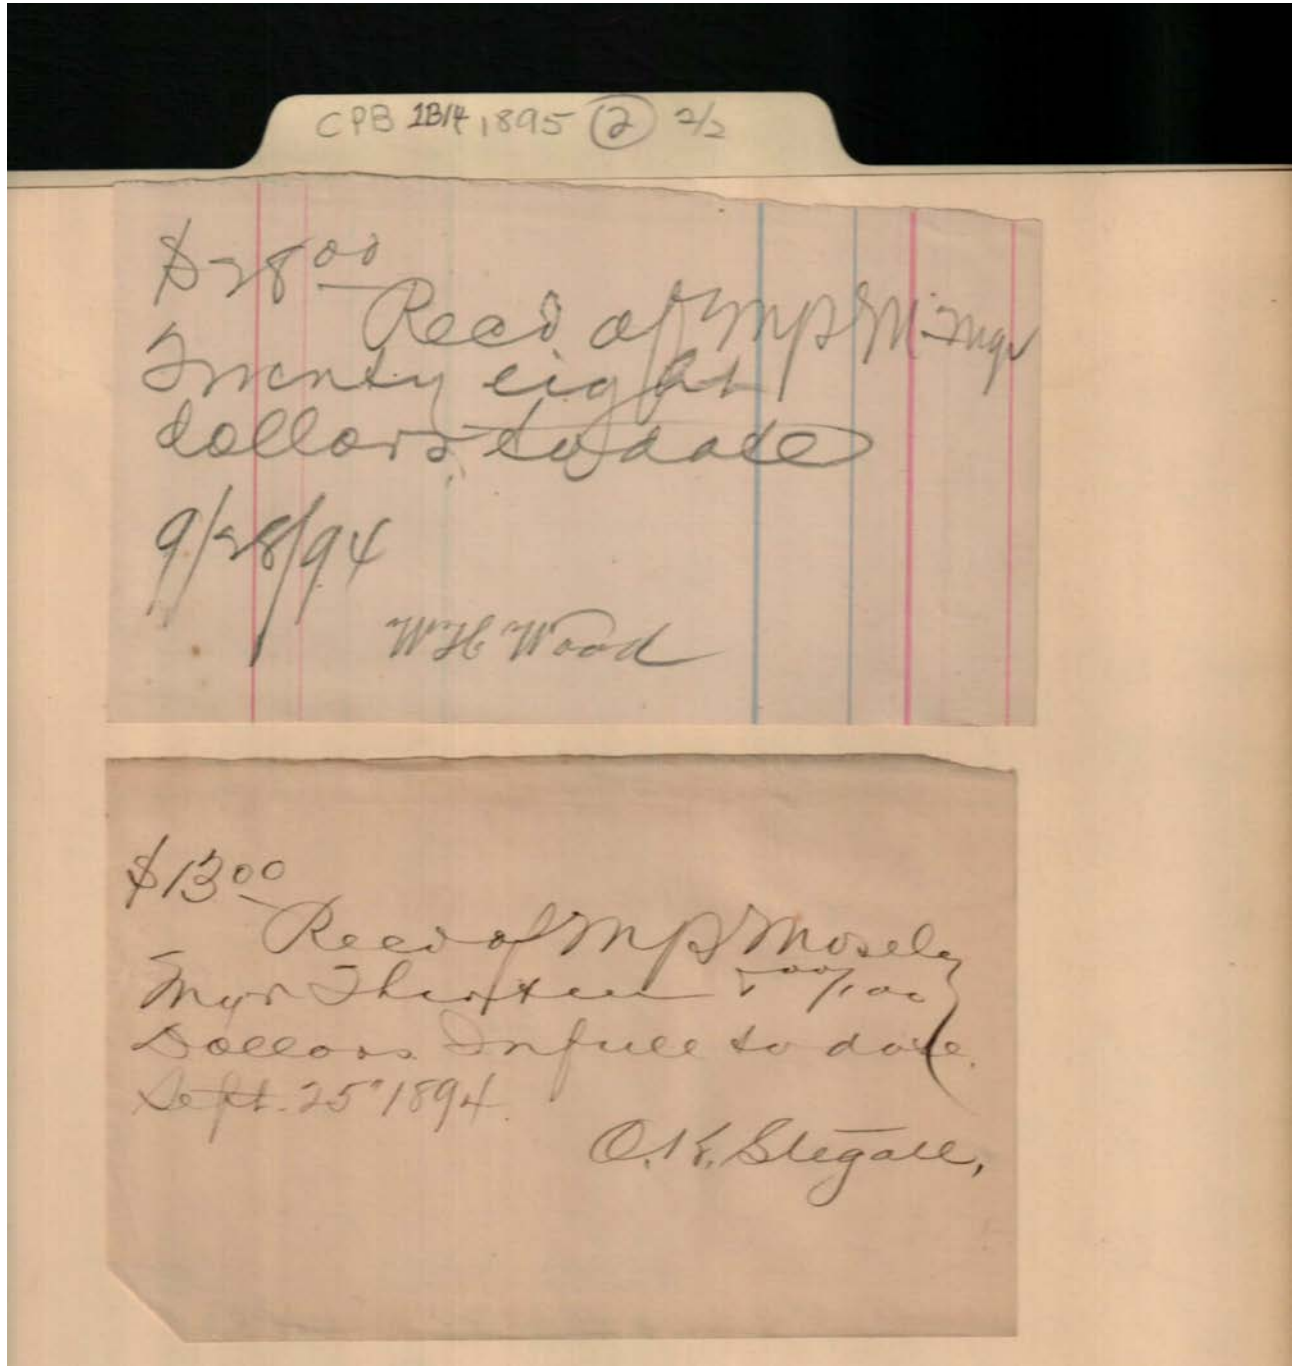 CPB 1B14 1895 (2) 2/2
$28 00
Recd of MPM Mgr
Twenty eight
dollars to date
9/28/94
W H Wood
$13 00
Recd of M P Mosely
Mgr Thirteen 00/100
Dollars In full to date.
Sept. 25" 1894.
O. K. Stegall,